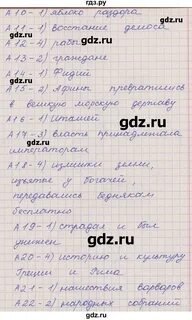 гдз.ру
А10-1) яблоко раздора
А11-1) Восстание демоса
А12-4) рабы
А13-2) граждане
А14-1) Фидий
А15-2) Афины превратились
в великую морскую державу
А16-1) Италией
А17-3) власть принадлежала
императорам
А18-4) излишки земли,
изъятые у богачей,
передавались беднякам
бесплатно
А19-1) страдал и был
унижен
А20-4) историю и культуру
Греции и Рима
А21-1) нашествия варваров
А22-2) народных собраний
gdz.ru
gdz.ru
gdz.ru
gdz.ru